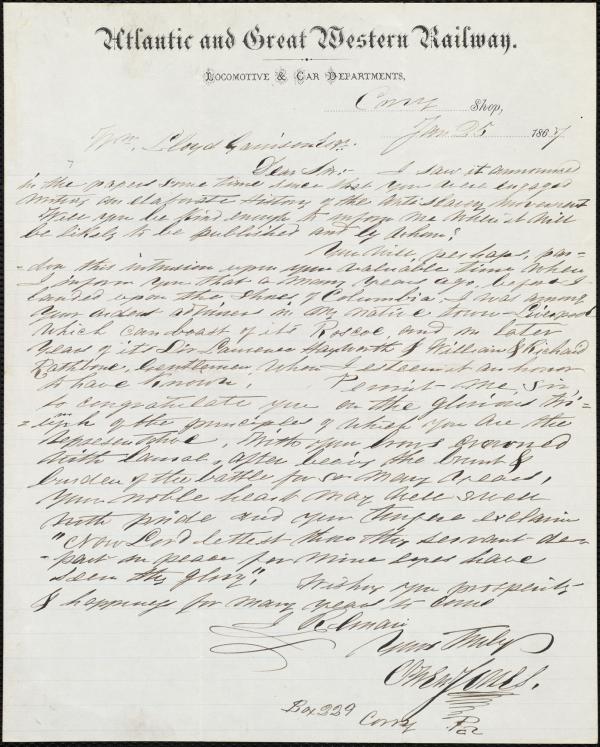 Atlantic and Great Western Railway.
Locomotive & Car Departments,
Corry Shop,
Jan 25 1867
Wm. Lloyd Garrison Esq.
Dear Sir:- I saw it announced
in the papers some time since that you were engaged
writing an elaborate History of the Antislavery movement
Will you be kind enough to inform me when it will
be likely to be published and by whom?
You will, perhaps, par-
-don this intrusion upon your valuable time when
I inform you that a many years ago, before I
landed upon the Shores of Columbia I was among
your ardent admirers in my native town Liverpool
which can boast of its Roscoe and in later
years of its Sir Laurence Heyworth & William & Richard
Rathbone, Gentlemen whom I esteem it an honor
to have known. Permit me, Sir
to congratulate you on the glorious tri-
-umph of the principles of which you are the
representative. With your brows crowned
with laurel, after being the brunt &
burden of the battle for so many years,
your noble heart may well swell
with pride and your tongue exclaim
"Now Lord lettest thou thy servant de-
-part in peace for mine eyes have
seen thy glory". Wishing you prosperity
& happiness for many years to come
I Remain
Yours Truly
Owen Jones.
Box 229 Corry Pa